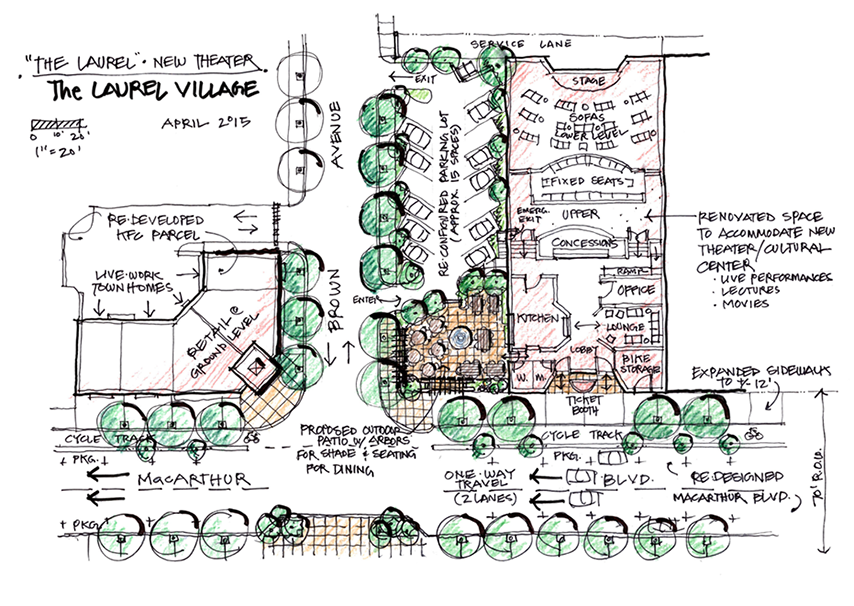 "THE LAUREL" · NEW THEATER
The LAUREL VILLAGE
APRIL 2015
0 10' 20'
1"=20'
SERVICE LANE
EXIT
AVENUE
BROWN
RE·CONFIGURED PARKING LOT
(APPROX. 15 SPACES)
STAGE
SOFAS
LOWER LEVEL
FIXED SEATS
UPPER
EMERG.
EXIT
CONCESSIONS
RAMP
OFFICE
KITCHEN
LOUNGE
LOBBY
W. M.
BIKE
STORAGE
TICKET
BOOTH
RENOVATED SPACE
TO ACCOMMODATE NEW
THEATER/CULTURAL
CENTER
· LIVE PERFORMANCES
· LECTURES
· MOVIES
RE·DEVELOPED
KFC PARCEL
LIVE·WORK
TOWNHOMES
RETAIL @
GROUND LEVEL
ENTER
EXPANDED SIDEWALK
TO +/- 12'
PROPOSED OUTDOOR
PATIO W/ ARBORS
FOR SHADE & SEATING
FOR DINING
CYCLE TRACK
PKG.
MACARTHUR
PKG
CYCLE TRACK
PKG.
ONE·WAY
TRAVEL
(2 LANES)
BLVD.
RE·DESIGNED
MACARTHUR BLVD.
70' R.O.W.